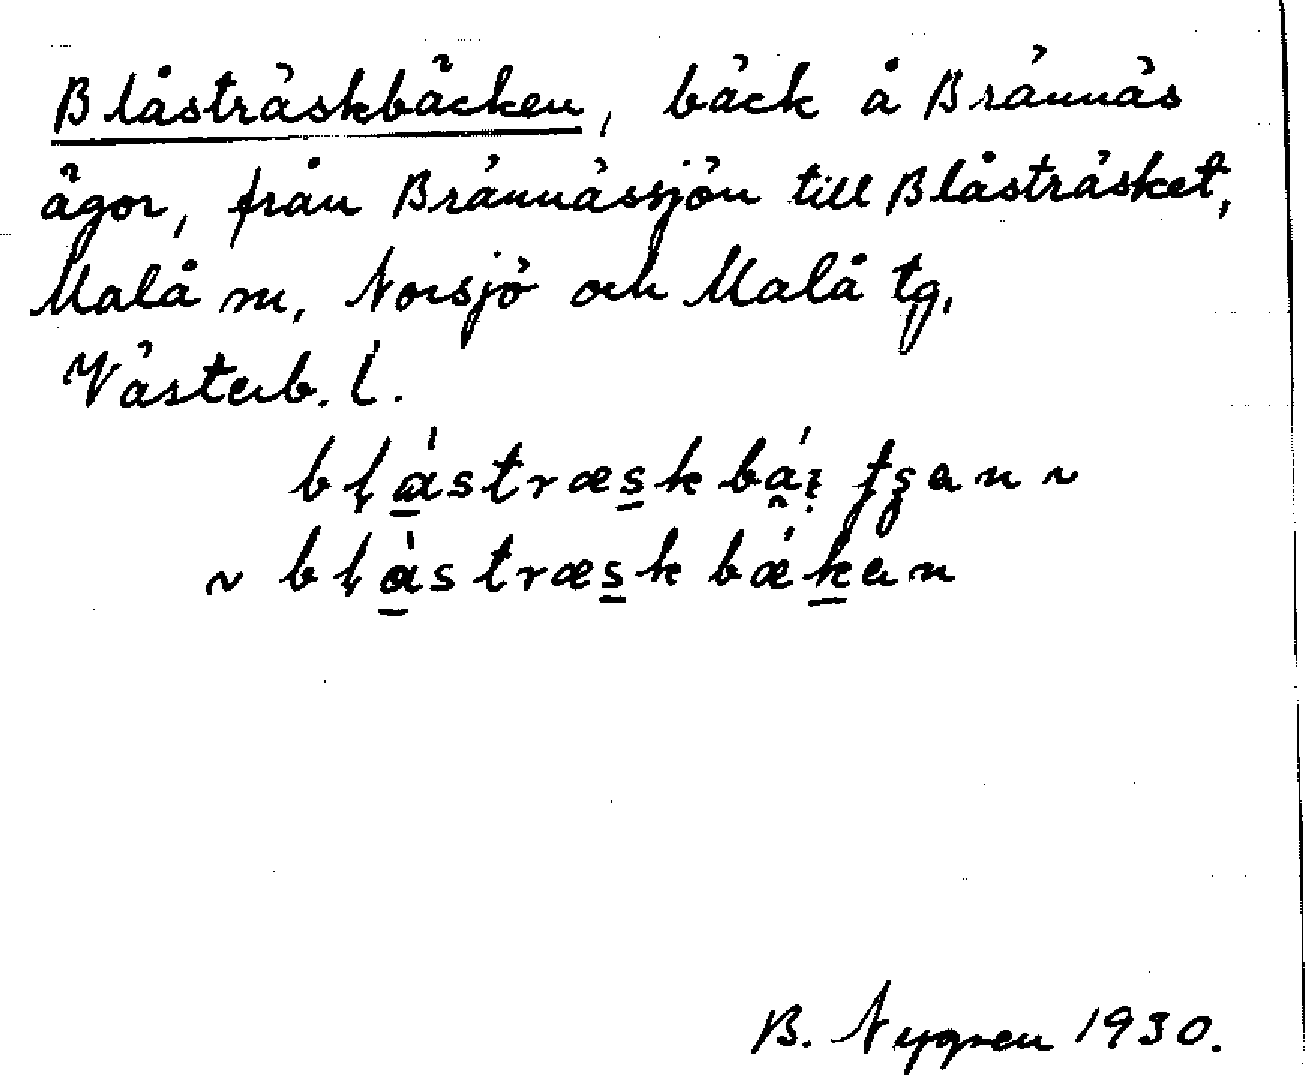 Blåsträskbäcken, bäck å Brännäs
ägor, från Brännässjön till Blåsträsket,
Malå sn, Norsjö och Malå tg,
Västerb. l.
blɑ̲́stræs̲kbá̰i̥ tʂan ~
~ blɑ̲̀stræs̲k bǽk̲an
B. Nygren 1930.